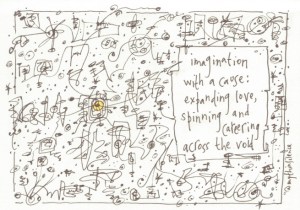 imagination
with a cause:
expanding love,
spinning and
careering
across the void